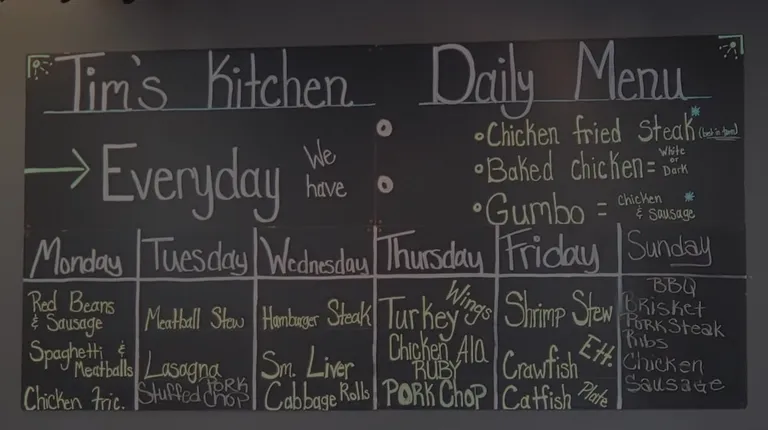 Tim's Kitchen Daily Menu
Everyday We have
Chicken fried Steak
Baked chicken = White or Dark
Gumbo = Chicken & Sausage
Monday
Red Beans
& Sausage
Spaghetti &
Meatballs
Chicken Fric.
Tuesday
Meatball Stew
Lasagna
Stuffed Pork
Chop
Wednesday
Hamburger Steak
Sm. Liver
Cabbage Rolls
Thursday
Wings
Turkey
Chicken Ala
RUBY
PORK Chop
Friday
Shrimp Stew
Crawfish Ett.
Catfish Plate
Sunday
BBQ
Brisket
Pork Steak
Ribs
Chicken
Sausage